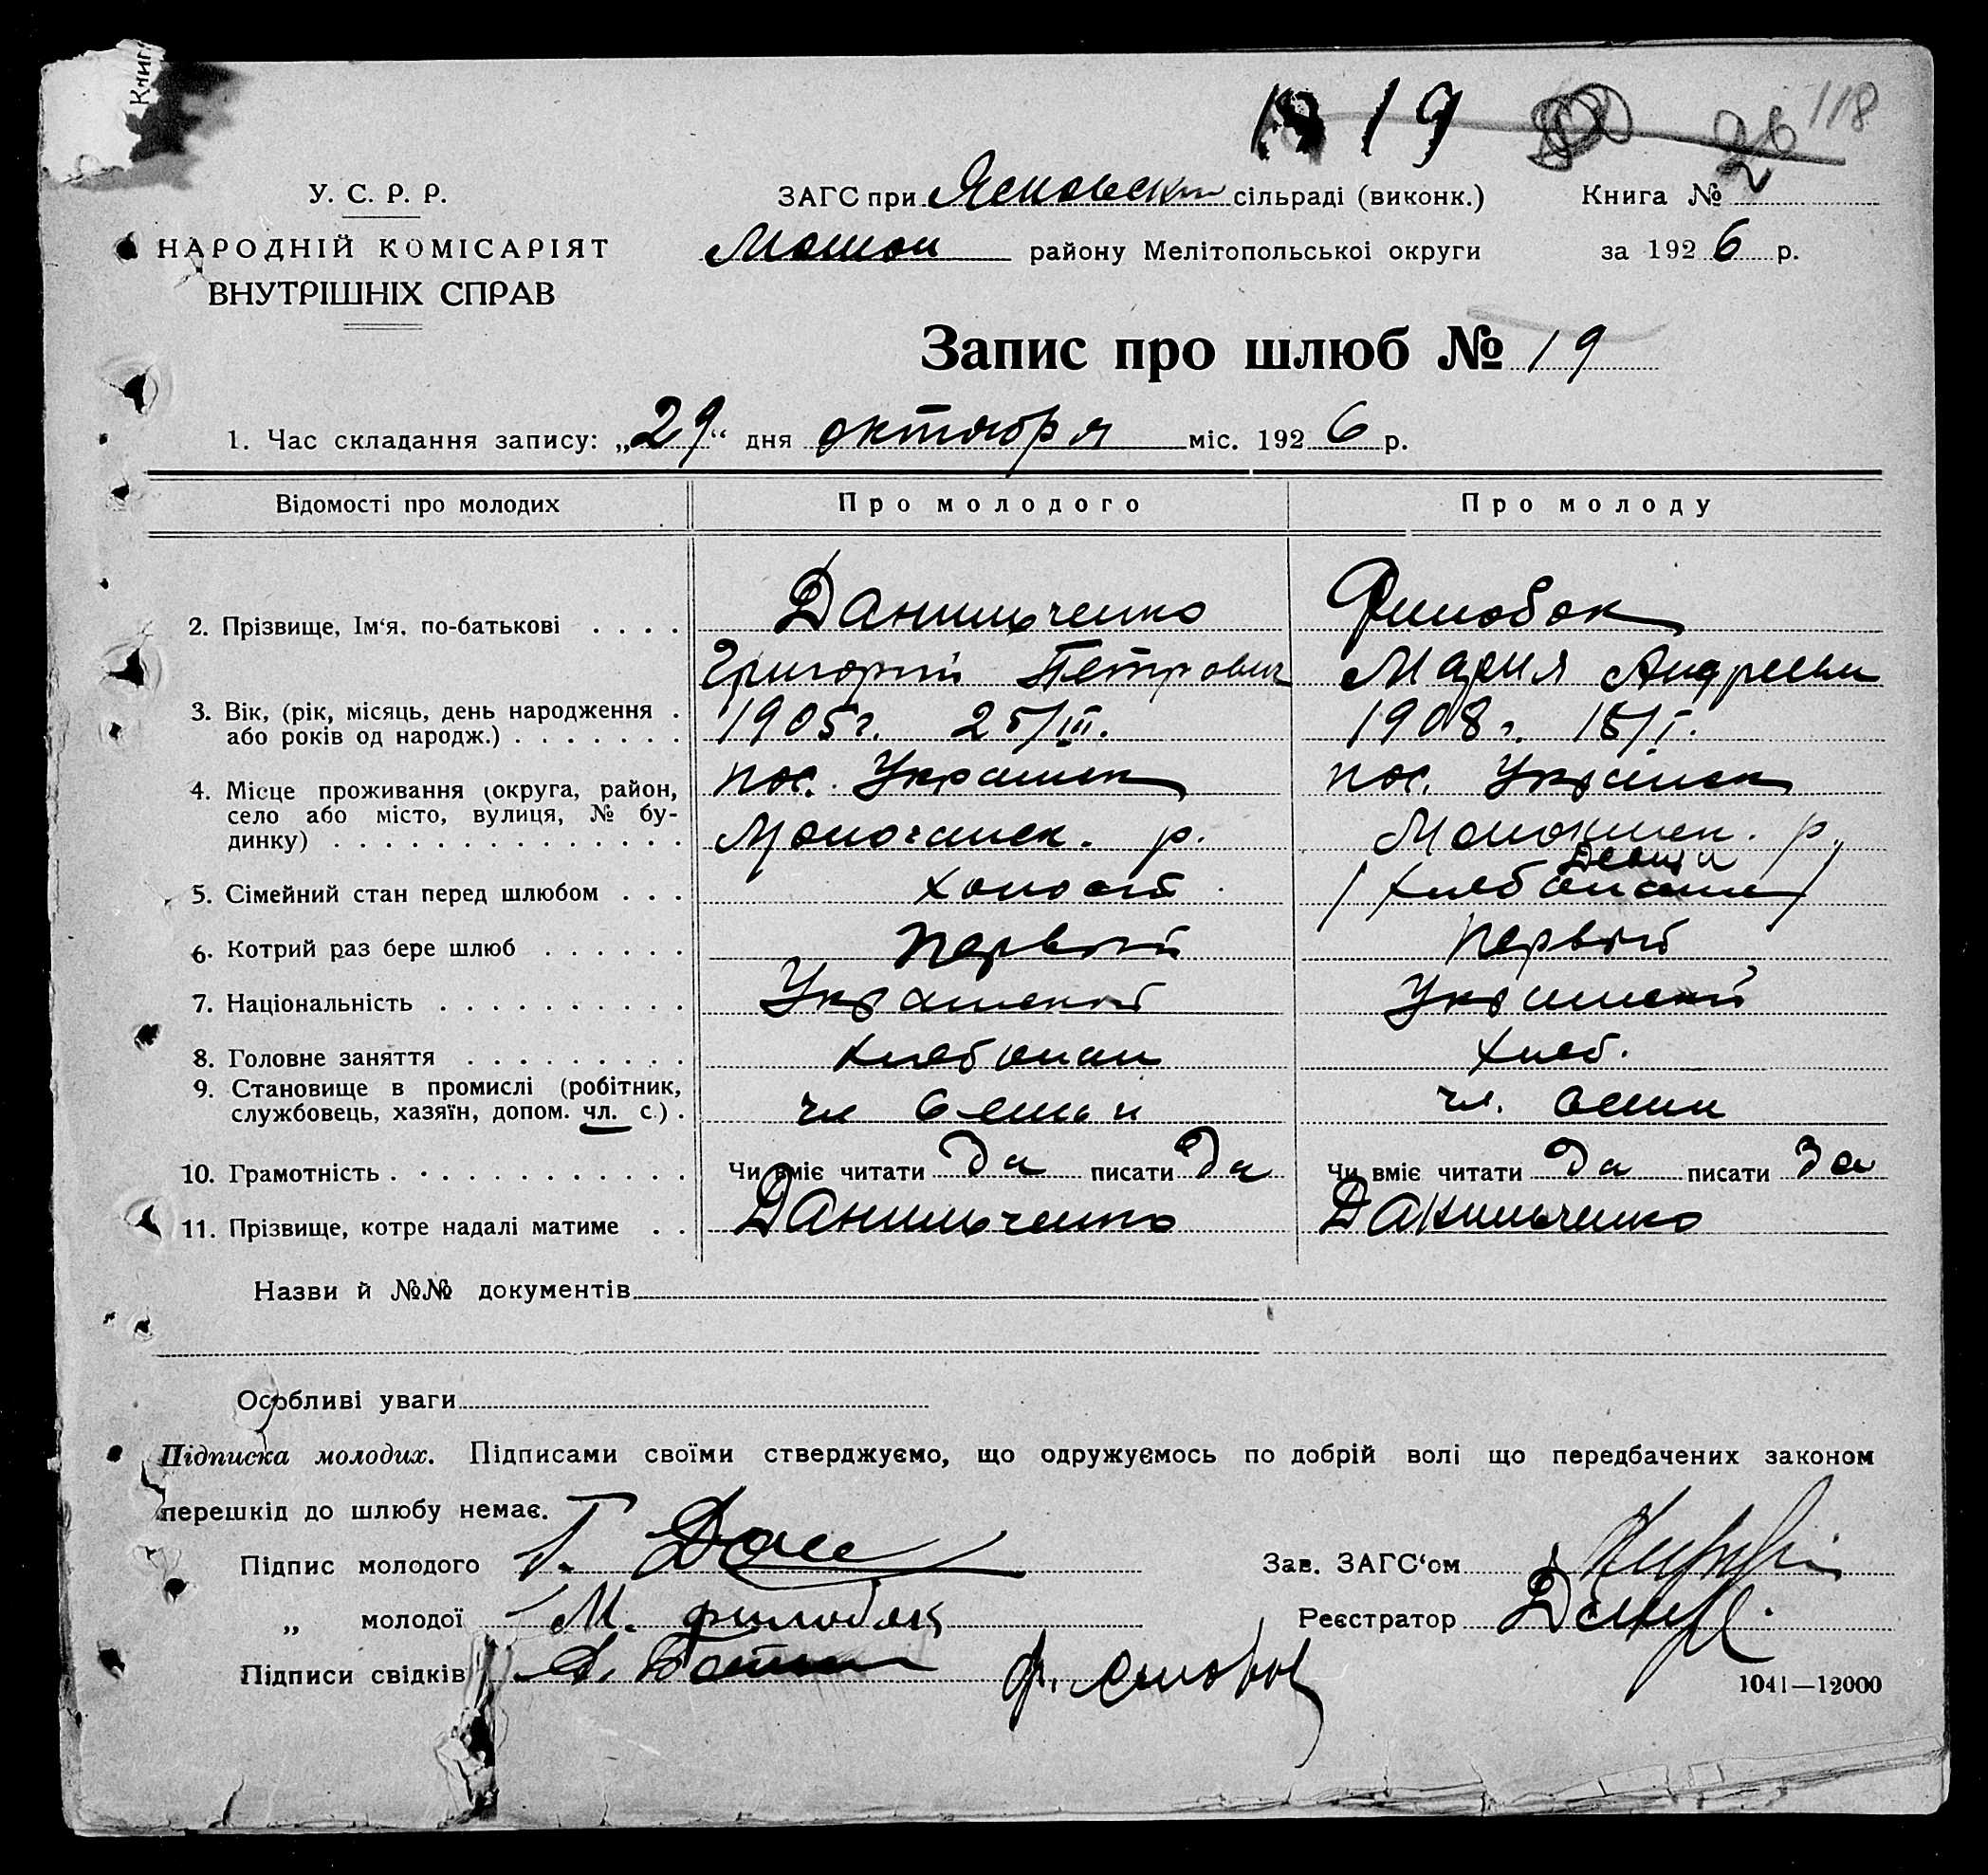 Книг
19 26 118
У. С. Р. Р.
НАРОДНІЙ КОМІСАРІЯТ
ВНУТРІШНІХ СПРАВ
ЗАГС при сільраді (виконк.)
району Мелітопольської округи
Книга № 2
за 1926 р.
Запис про шлюб № 19
1. Час складання запису: „29“ дня октября міс. 1926 р.
Відомості про молодих Про молодого Про молоду
2. Прізвище, Ім‘я, по-батькові . . . . Данильченко Филобок
Григорий Петрович Мария Андреевн
3. Вік, (рік, місяць, день народження . або років од народж.) . . . . . . . 1905г. 25/III. 1908г. 15/I.
4. Місце проживання (округа, район, пос. пос.
село або місто, вулиця, № бу-
динку) . . . . . . . . . . . . . . . р. р.
5. Сімейний стан перед шлюбом . . . холост девиц
6. Котрий раз бере шлюб . . . . . . первый первый
7. Національність . . . . . . . . . . Украинский Украинский
8. Головне заняття . . . . . . . . . хлебопаш хлеб.
9. Становище в промислі (робітник,
службовець, хазяїн, допом. чл. с.) . чл семьи чл. семи
10. Грамотність . . . . . . . . . . . . Чи вміє читати Да писати Да Чи вміє читати Да писати Да
11. Прізвище, котре надалі матиме . . Данильченко Данильченко
Назви й №№ документів
Особливі уваги
Підписка молодих. Підписами своїми стверджуємо, що одружуємось по добрій волі що передбачених законом
перешкід до шлюбу немає.
Підпис молодого Г. Дан Зав. ЗАГС‘ом
„ молодої М. филобок Реєстратор
Підписи свідків
1041—12000